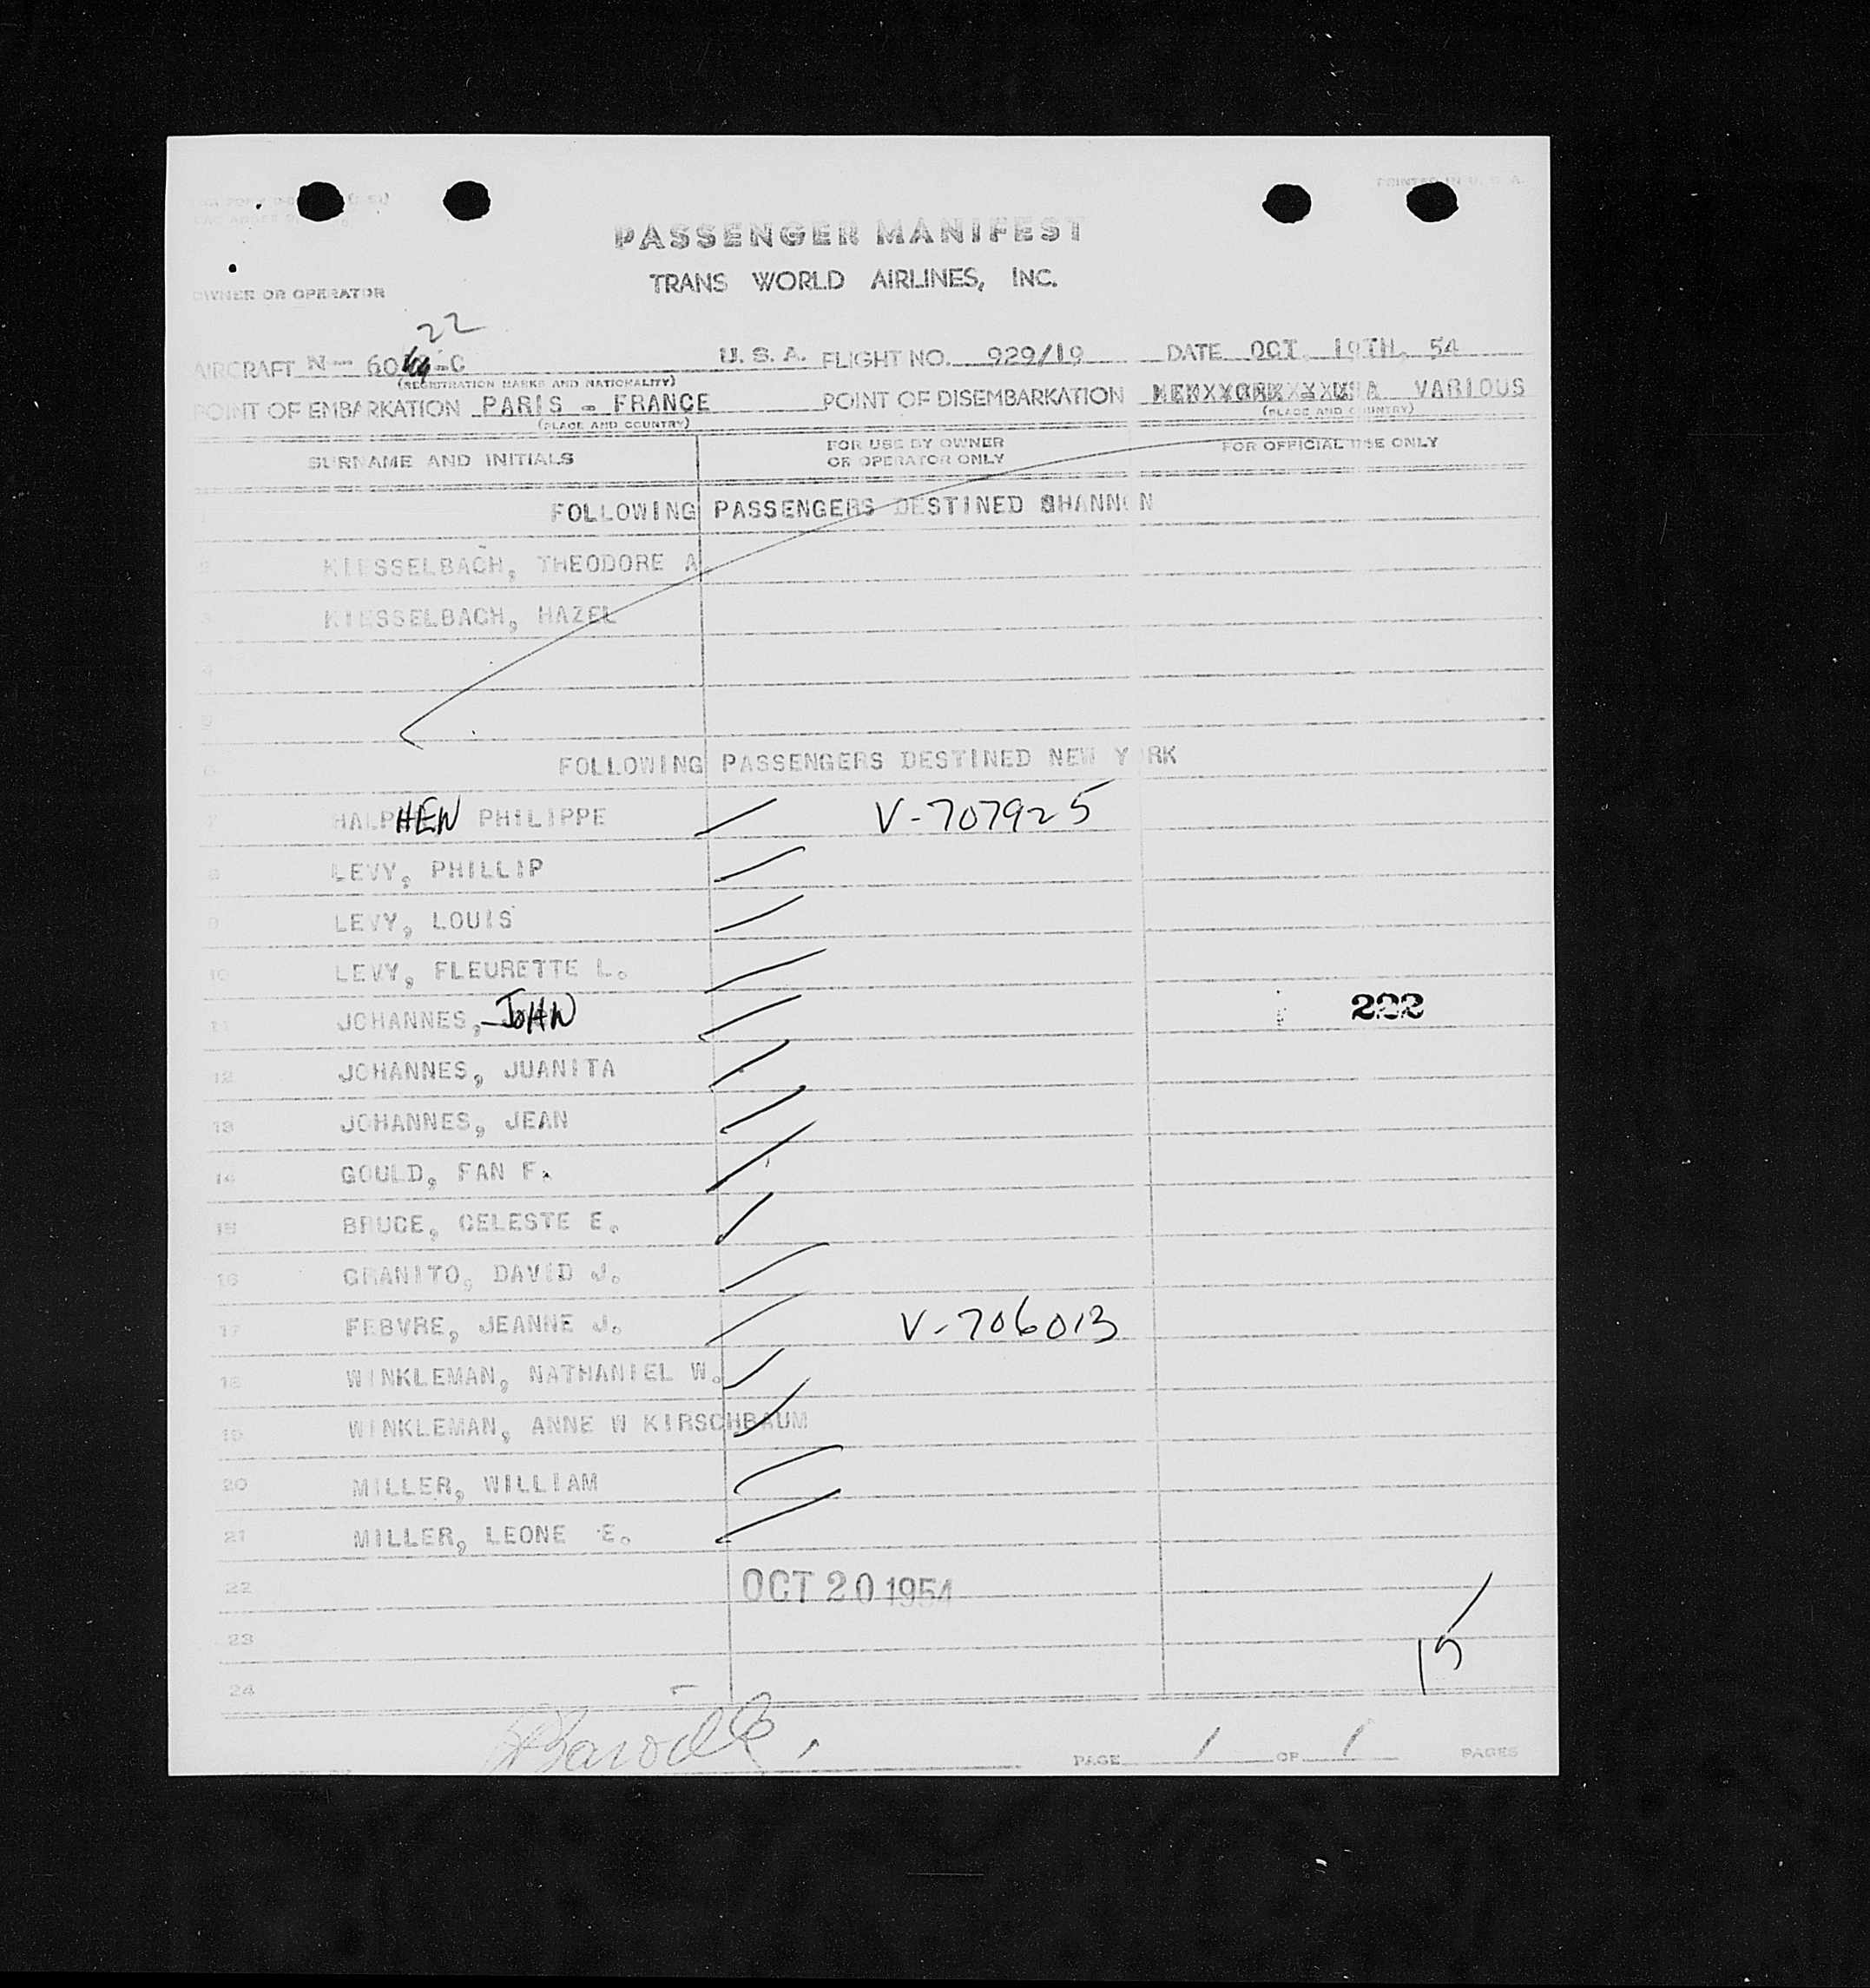 PRINTED IN U. S. A.
PASSENGER MANIFEST
TRANS WORLD AIRLINES, INC.
OWNER OR OPERATOR
22
AIRCRAFT N — C U. S. A. FLIGHT NO. 929/19 DATE OCT. 19TH, 54
(REGISTRATION MARKS AND NATIONALITY)
POINT OF EMBARKATION PARIS - FRANCE POINT OF DISEMBARKATION VARIOUS
(PLACE AND COUNTRY) (PLACE AND COUNTRY)
SURNAME AND INITIALS FOR USE BY OWNER OR OPERATOR ONLY FOR OFFICIAL USE ONLY
1 FOLLOWING PASSENGERS DESTINED SHANNON
2 KIESSELBACH, THEODORE A
3 KIESSELBACH, HAZEL
4
5
6 FOLLOWING PASSENGERS DESTINED NEW YORK
7 HALPHEN PHILIPPE V-707925
8 LEVY, PHILLIP
9 LEVY, LOUIS
10 LEVY, FLEURETTE L.
11 JOHANNES, JOHN 222
12 JOHANNES, JUANITA
13 JOHANNES, JEAN
14 GOULD, FAN F.
15 BRUCE, CELESTE E.
16 GRANITO, DAVID J.
17 FEBVRE, JEANNE J. V-706013
18 WINKLEMAN, NATHANIEL W.
19 WINKLEMAN, ANNE W KIRSCHBAUM
20 MILLER, WILLIAM
21 MILLER, LEONE E.
22 OCT 20 1954
23 15
24
PAGE 1 OF 1 PAGES